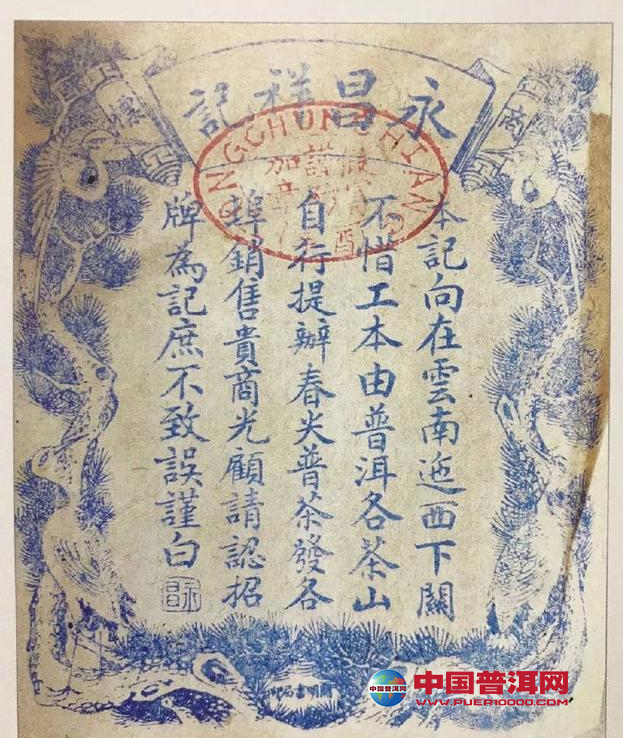 商標
永昌祥記
本記向在雲南迤西下關
不惜工本由普洱各茶山
自行提辦春尖普茶發各
埠銷售貴商光顧請認招
牌為記庶不致誤謹白
永昌
中国普洱网
中国普洱网
WWW.PUER10000.COM